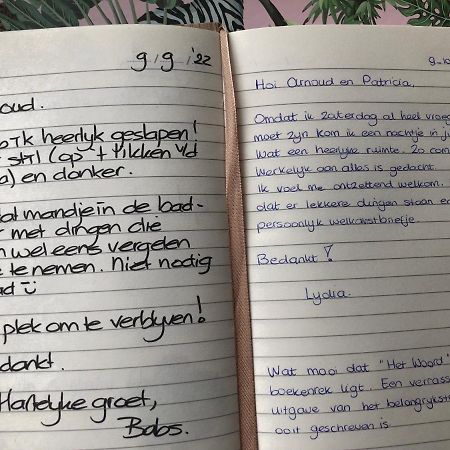 9/9/'22
oud.
Ik heerlijk geslapen!
stil (op 't tikken v/d
a) en donker.
al mandje in de bad-
r met dingen die
n wel eens vergelen
e te nemen. Niet nodig
ad
plek om te verblijven!
dankt.
Hartelijke groet,
Babs.
9-10
Hoi Arnoud en Patricia,
Omdat ik zaterdag al heel vroeg
moet zijn kom ik een nachtje in ju
Wat een heerlijke ruimte. Zo com
Werkelijk aan alles is gedacht.
Ik voel me ontzettend welkom.
dat er lekkere dingen staan e
persoonlijk welkomstbriefje.
Bedankt!
Lydia.
Wat mooi dat "Het Woord"
boekenrek ligt. Een verrass
uitgave van het belangrijkst
ooit geschreven is.